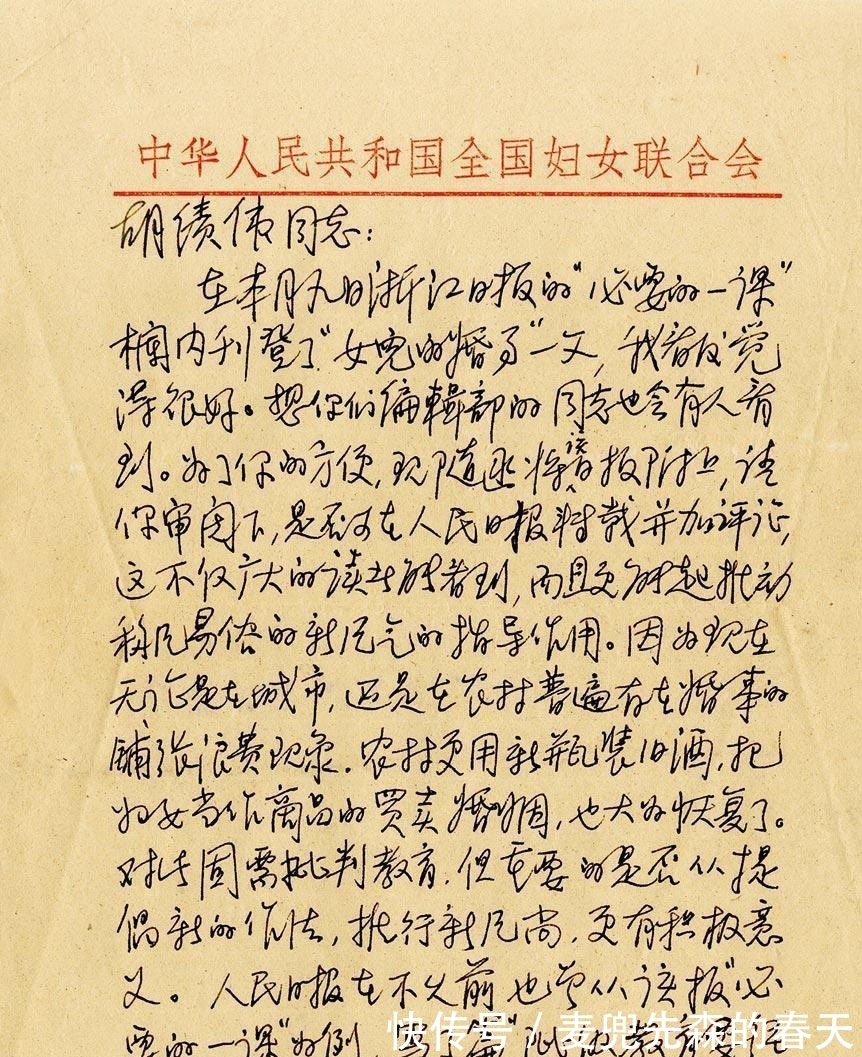 中华人民共和国全国妇女联合会
胡绩伟同志:
在本月九日浙江日报的“必要的一课”
栏内刊登了“女儿的婚事”一文,我看后觉
得很好。想你们编辑部的同志也会有人看
到。为了你的方便,现随函将该报附上,请
你审阅下,是否可在人民日报转载并加评论,
这不仅广大的读者能看到,而且更能起推动
移风易俗的新风气的指导作用。因为现在
无论是在城市,还是在农村普遍存在婚事的
铺张浪费现象。农村更用新瓶装旧酒,把
妇女当作商品的买卖婚姻,也大为恢复了。
对此固需批判教育,但重要的是否从提
倡新的作法,推行新风尚,更有积极意
义。人民日报在不久前也曾从该报“必
要的一课”为例,写了篇
快传号 / 麦兜先森的春天